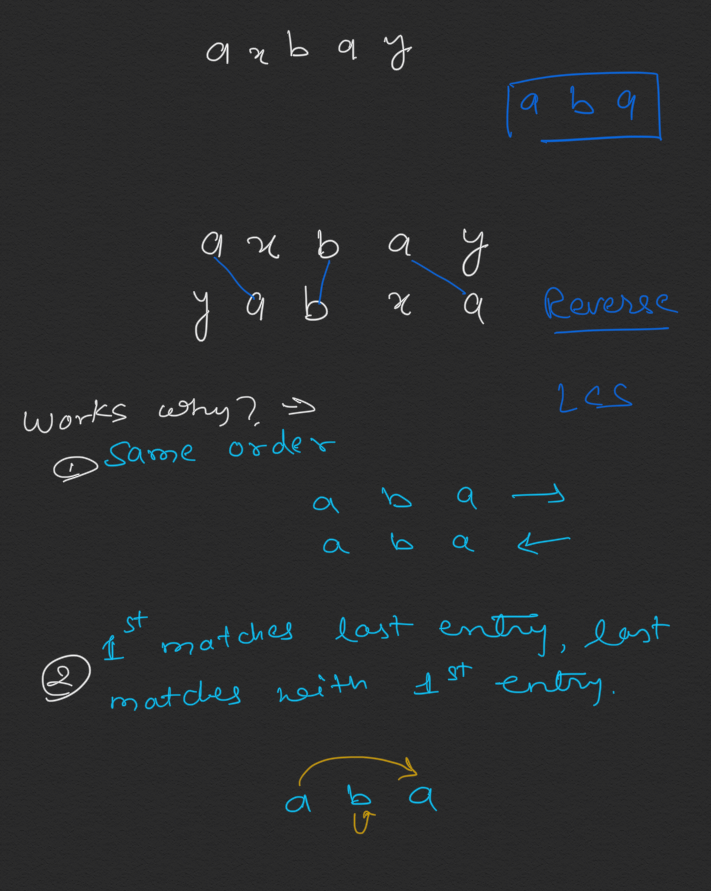 a x b a y
a b a
a x b a y
y a b x a Reverse
LCS
Works why? ⇒
① Same order
a b a →
a b a ←
② 1st matches last entry, last
matches with 1st entry.
a b a